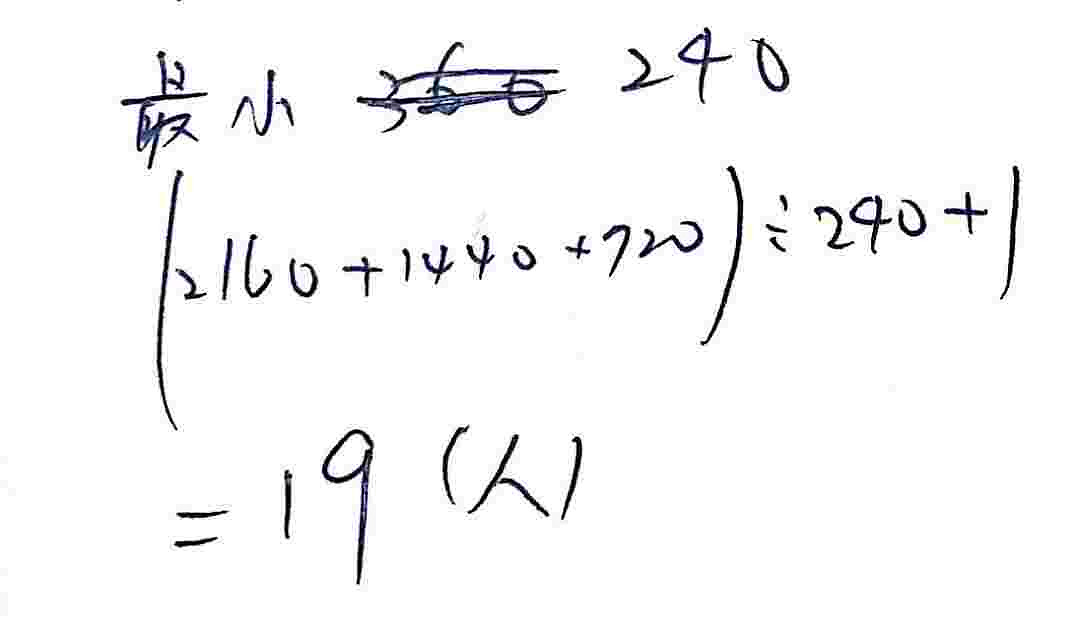 最小 360 240
(2160+1440+720)÷240+1
=19(人)